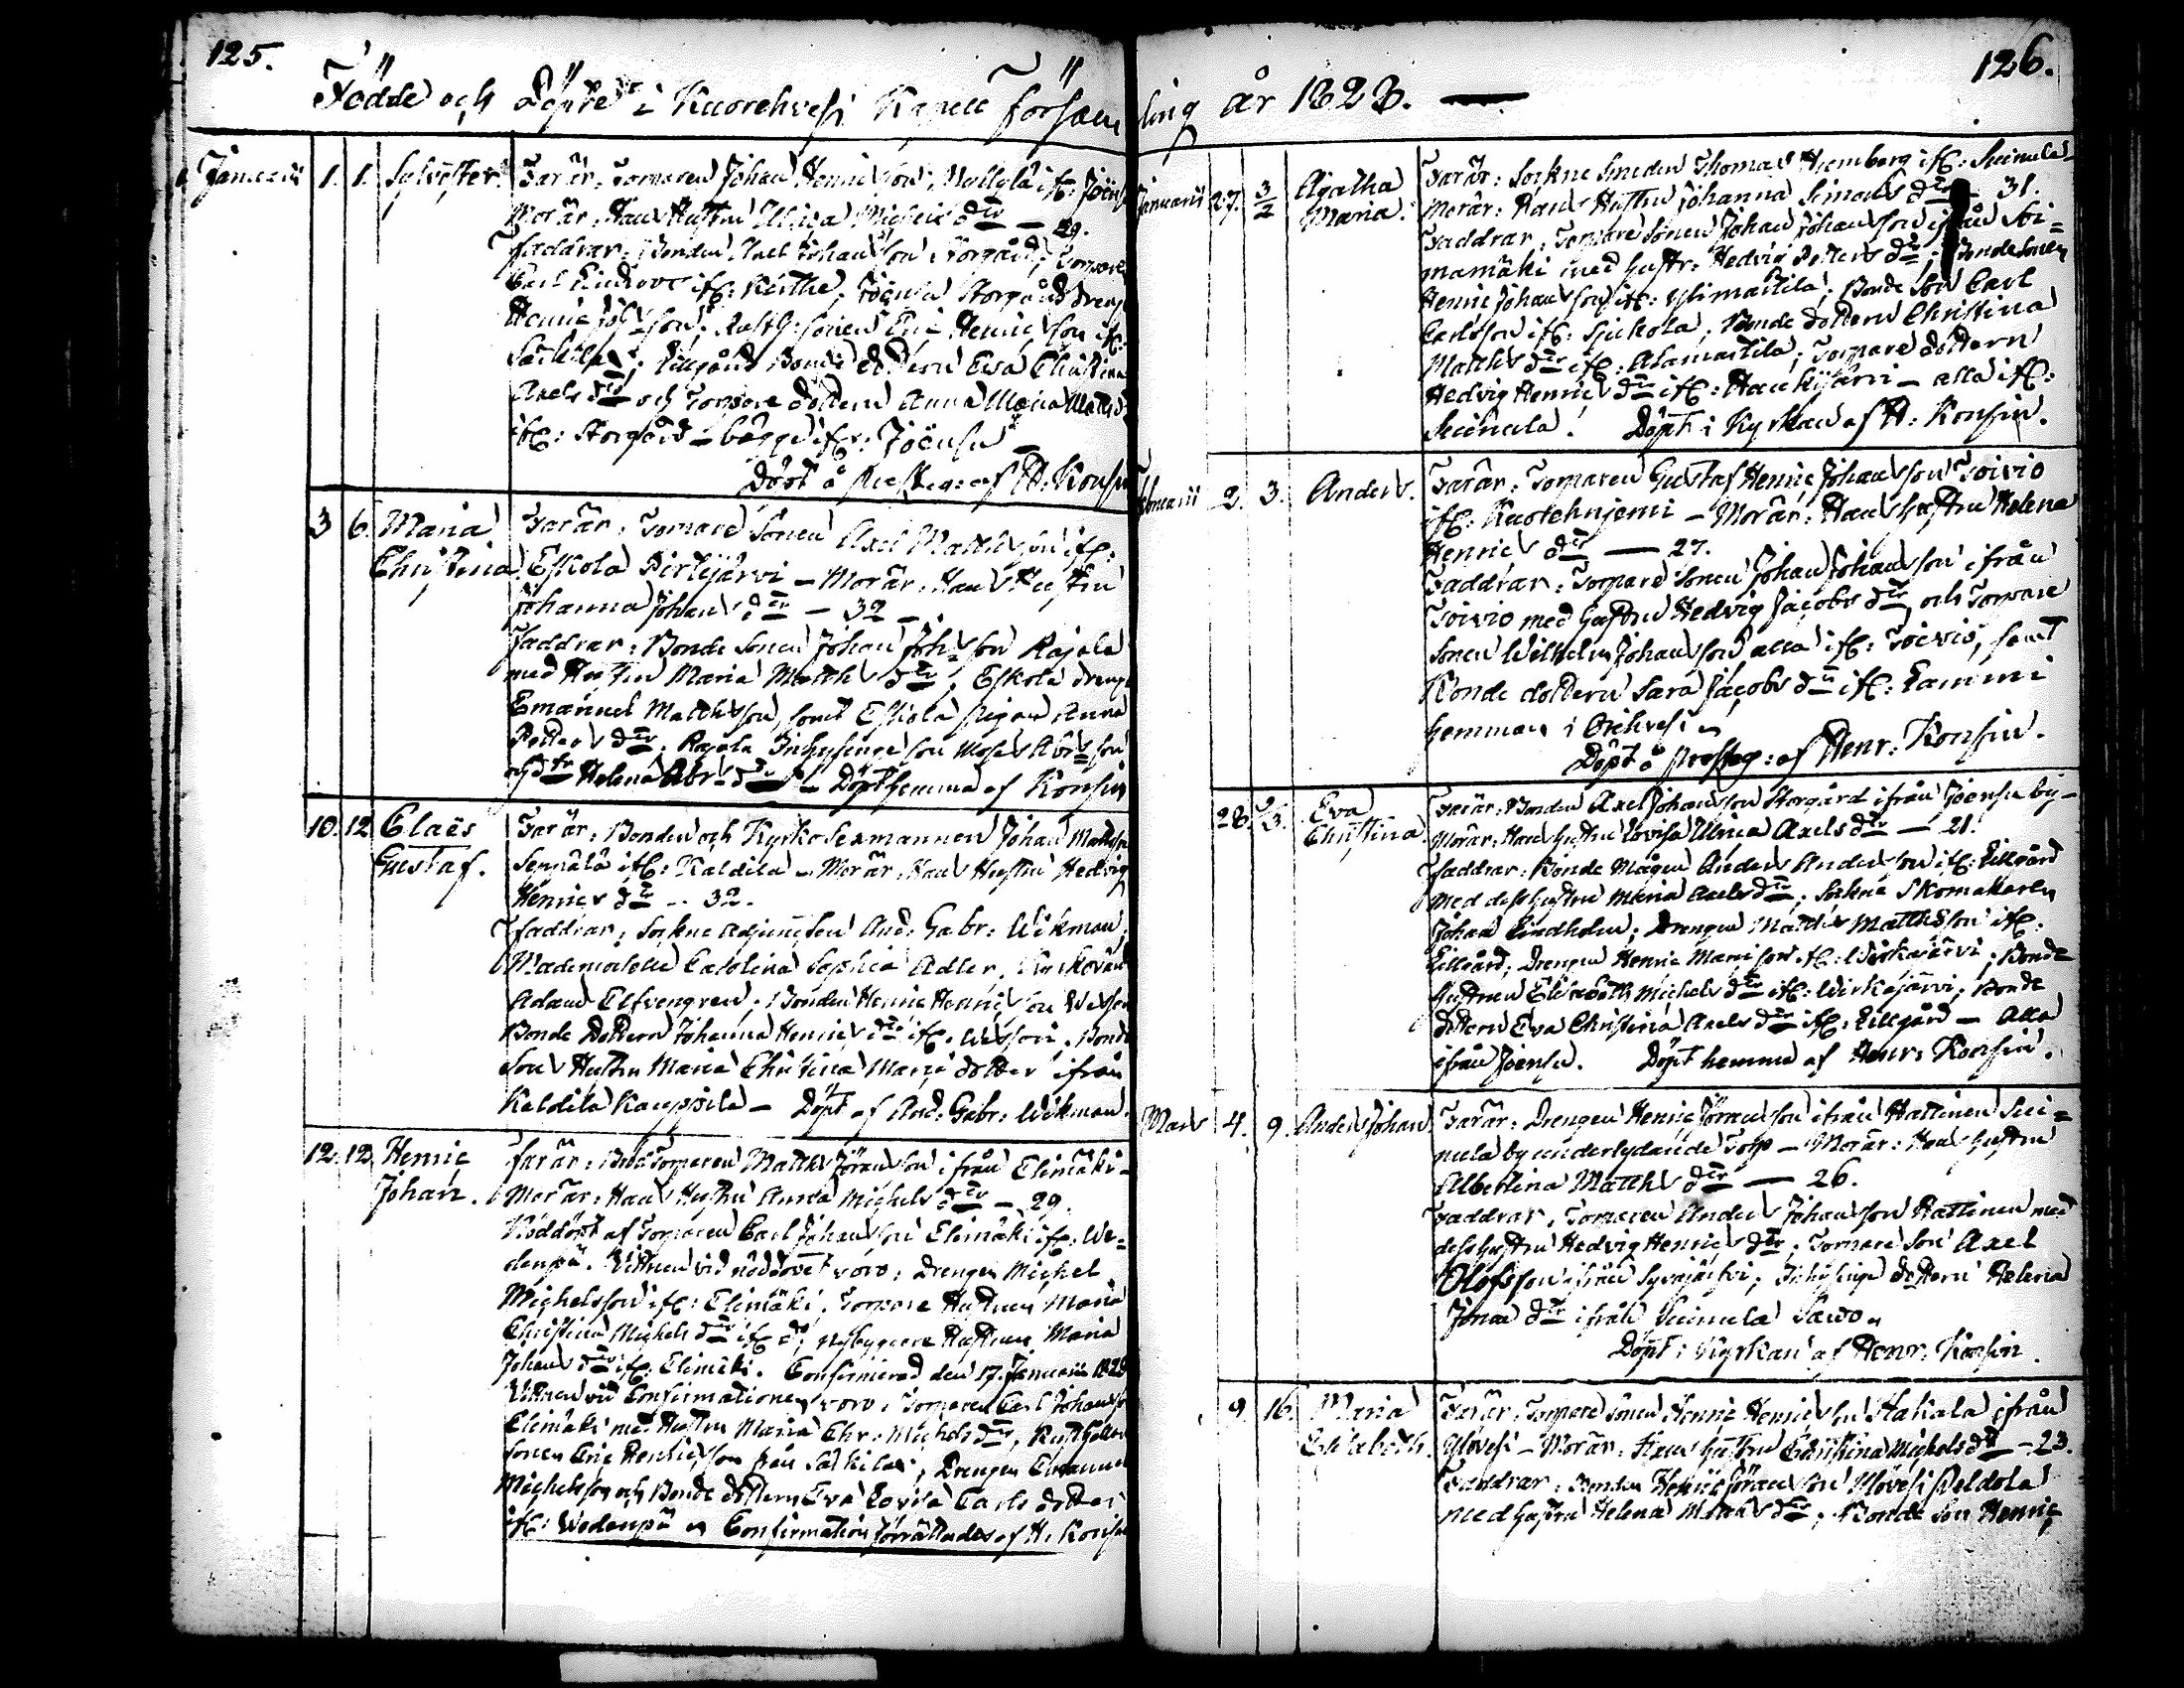 125.
Födde och Döpte i Kuorehvesi Kapell Församling år 1823.
Januarii 1. 1. Sylvester.
Far är: Torparen Johan Henricson Myllylä ifr: Joënsu
Mor är: Hans Hustru Ulrica Michels dr — 29.
Faddrar: Bonden Axel Johansson Storgård; Torpare
Carl Lindroos ifr: Joënsu Storgård Dreng
Henric Johsson; sonen Eric Henricson ifr:
Säckilax; Lillgård Bonde dottern Eva Christina
Axels dr och Torpare dottern Anna Maria Matts d
ifr: Storgård — bägge ifr: Joënsu
Döpt å af H: Konsin
3 6. Maria Christina
Far är: Torpare Sonen Axel Matthsson ifr:
Eskola Pirttijärvi — Mor är: Hans Hustru
Johanna Johans dr — 32 —
Faddrar: Bonde Sonen Johan Johsson Rajala
med Hustru Maria Matth dr; Eskola dreng
Emanuel Matthsson, samt Eskola pigan Anna
Petters dr. Rajala Inhysinge son Moses Abrsson
och dr Helena Abr dr — Döpt hemma af Konsin
10. 12 Claës Gustaf.
Far är: Bonden och Kyrko Sexmannen Johan Mattsson
Seppälä ifr: Kaldila — Mor är: Hans Hustru Hedvig
Henrics dr — 32.
Faddrar: Sockne Adjuncten And: Gabr: Wikman,
Mademoiselle Carolina Sophia Adler,
Adam Elfvengren; Bonden Henric Henricson
Bonde Dottern Johanna Henrics dr ifr: Bonde
Son Hustru Maria Christina Maria dotter ifrån
Kaldila Kauppila — Döpt af And: Gabr: Wikman.
12. 12 Henric Johan.
Far är: Torparen Matth Jöransson ifrån Elimäki —
Mor är: Hans Hustru Anna Michels dr — 29.
Nöddöpt af Torparen Carl Johansson Elimäki ifr: We=
denpä. Vittnen vid nöddopet voro: Drengen Michel
Michelsson ifr: Elimäki. Torpare Hustrun Maria
Christina Michels dr ifr do; Nybyggare Hustrun Maria
Johans dr ifr: Elimäki. Confirmerad den 17. Januarii 1823
Vittnen vid Confirmationen voro: Torparen Carl Johansson
Elimäki med Hustru Maria Chr: Michels dr, Rusthållare
sonen Eric Henricsson från Säckilax; Drengen Emanuel
Michelsson och Bonde dottern Eva Lovisa Carls dotter
ifr: Wedenpä — Confirmation förrättades af H. Konsin
126.
Januarii 27. 3/2 Agatha Maria.
Far är: Sockne Smeden Thomas Hemberg ifr: Suinula
Mor är: Hans Hustru Johanna Simons dr — 31.
Faddrar: Torpare Sonen Johan Johansson ifrån
mamäki med Hustr: Hedvig Petters dr; Bonde Sonen
Henric Johansson ifr: Ylimattila; Bonde Son Carl
Carlsson ifr: Sickola. Bonde dottern Christina
Matth dr ifr: Alamattila; Torpare dottern
Hedvig Henrics dr ifr: Haukijärvi — alla ifr:
Suinula. Döpt i Kyrkan af H: Konsin.
2. 3. Anders.
Far är: Torparen Gustaf Henric Johansson Toivio
ifr: — Mor är: Hans Hustru Helena
Henrics dr — 27.
Faddrar: Torpare Sonen Johan Johansson ifrån
Toivio med Hustru Hedvig Jacobs dr och Torpare
Sonen Wilhelm Johansson alla ifr: Toivio, samt
Bonde dottern Sara Jacobs dr ifr: Lammi
hemman i Orihvesi —
Döpt å af Henr: Konsin.
28. Eva Christina
Far är: Bonden Axel Johansson Storgård ifrån Joensu by —
Mor är: Hans Hustru Lovisa Ulrica Axels dr — 21.
Faddrar: Bonde Mågen Anders Andersson ifr: Lillgård
med dess Hustru Maria Axels dr; Sockne Skomakaren
Johan Lindholm; Drengen Matth Matthsson ifr:
Lillgård; Drengen Henric Mariæson ifr: Wirkajärvi; Bonde
Hustrun Elisabeth Michels dr ifr: Wirkajärvi; Bonde
dottern Eva Christina Axels dr ifr: Lillgård — Alla
ifrån Joensu. Döpt hemma af Henr: Konsin.
Mars 4. 9. Anders Johan
Far är: Drengen Henric Jöransson ifrån Hattinen Sui=
nula by underlydande Torp — Mor är: Hans Hustru
Albertina Matth dr — 26.
Faddrar: Torparen Anders Johansson Hattinen med
dess Hustru Hedvig Henrics dr; Torpare Son Axel
Olofsson ifrån Syväjärvi; Inhysinge dottern Helena
Jonæ dr ifrån Suinula Sawo —
Döpt i Kyrkan af Henr: Konsin.
9. 16. Maria Elisabeth.
Far är: Torpare Sonen Henric Henricson Hakala ifrån
— Mor är: Hans Hustru Christina Michels dr — 23.
Faddrar: Bonden Henric Jöransson Peldola
med Hustru Helena Matth dr; Bonde Son Henric